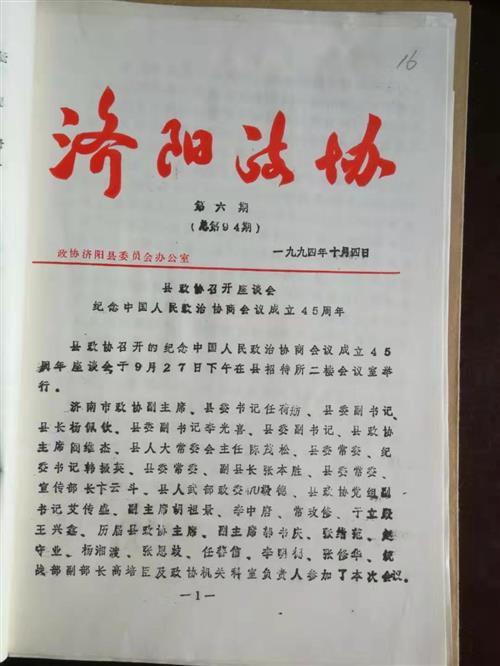 16
济阳政协
第六期
(总第94期)
政协济阳县委员会办公室 一九九四年十月四日
县政协召开座谈会
纪念中国人民政治协商会议成立45周年
县政协召开的纪念中国人民政治协商会议成立45
周年座谈会于9月27日下午在县招待所二楼会议室举
行。
济南市政协副主席、县委书记任荷舫、县委副书记、
县长杨佩钦、县委副书记李光喜、县委副书记、县政协
主席阎维杰、县人大常委会主任陈茂松、县委常委、纪
委书记韩振英、县委常委、副县长张本胜、县委常委、
宣传部长卞云斗、县人武部政委 德、县政协党组副
书记艾传盛、副主席胡祖景、李中府、常玫修、于立殿
王兴鑫、历届县政协主席、副主席郭书庆、张 范、赵
守业、杨湘濮、张恩 、任 信、李明 、张修华、统
战部副部长高培臣及政协机关科室负责人参加了本次会议。
—1—